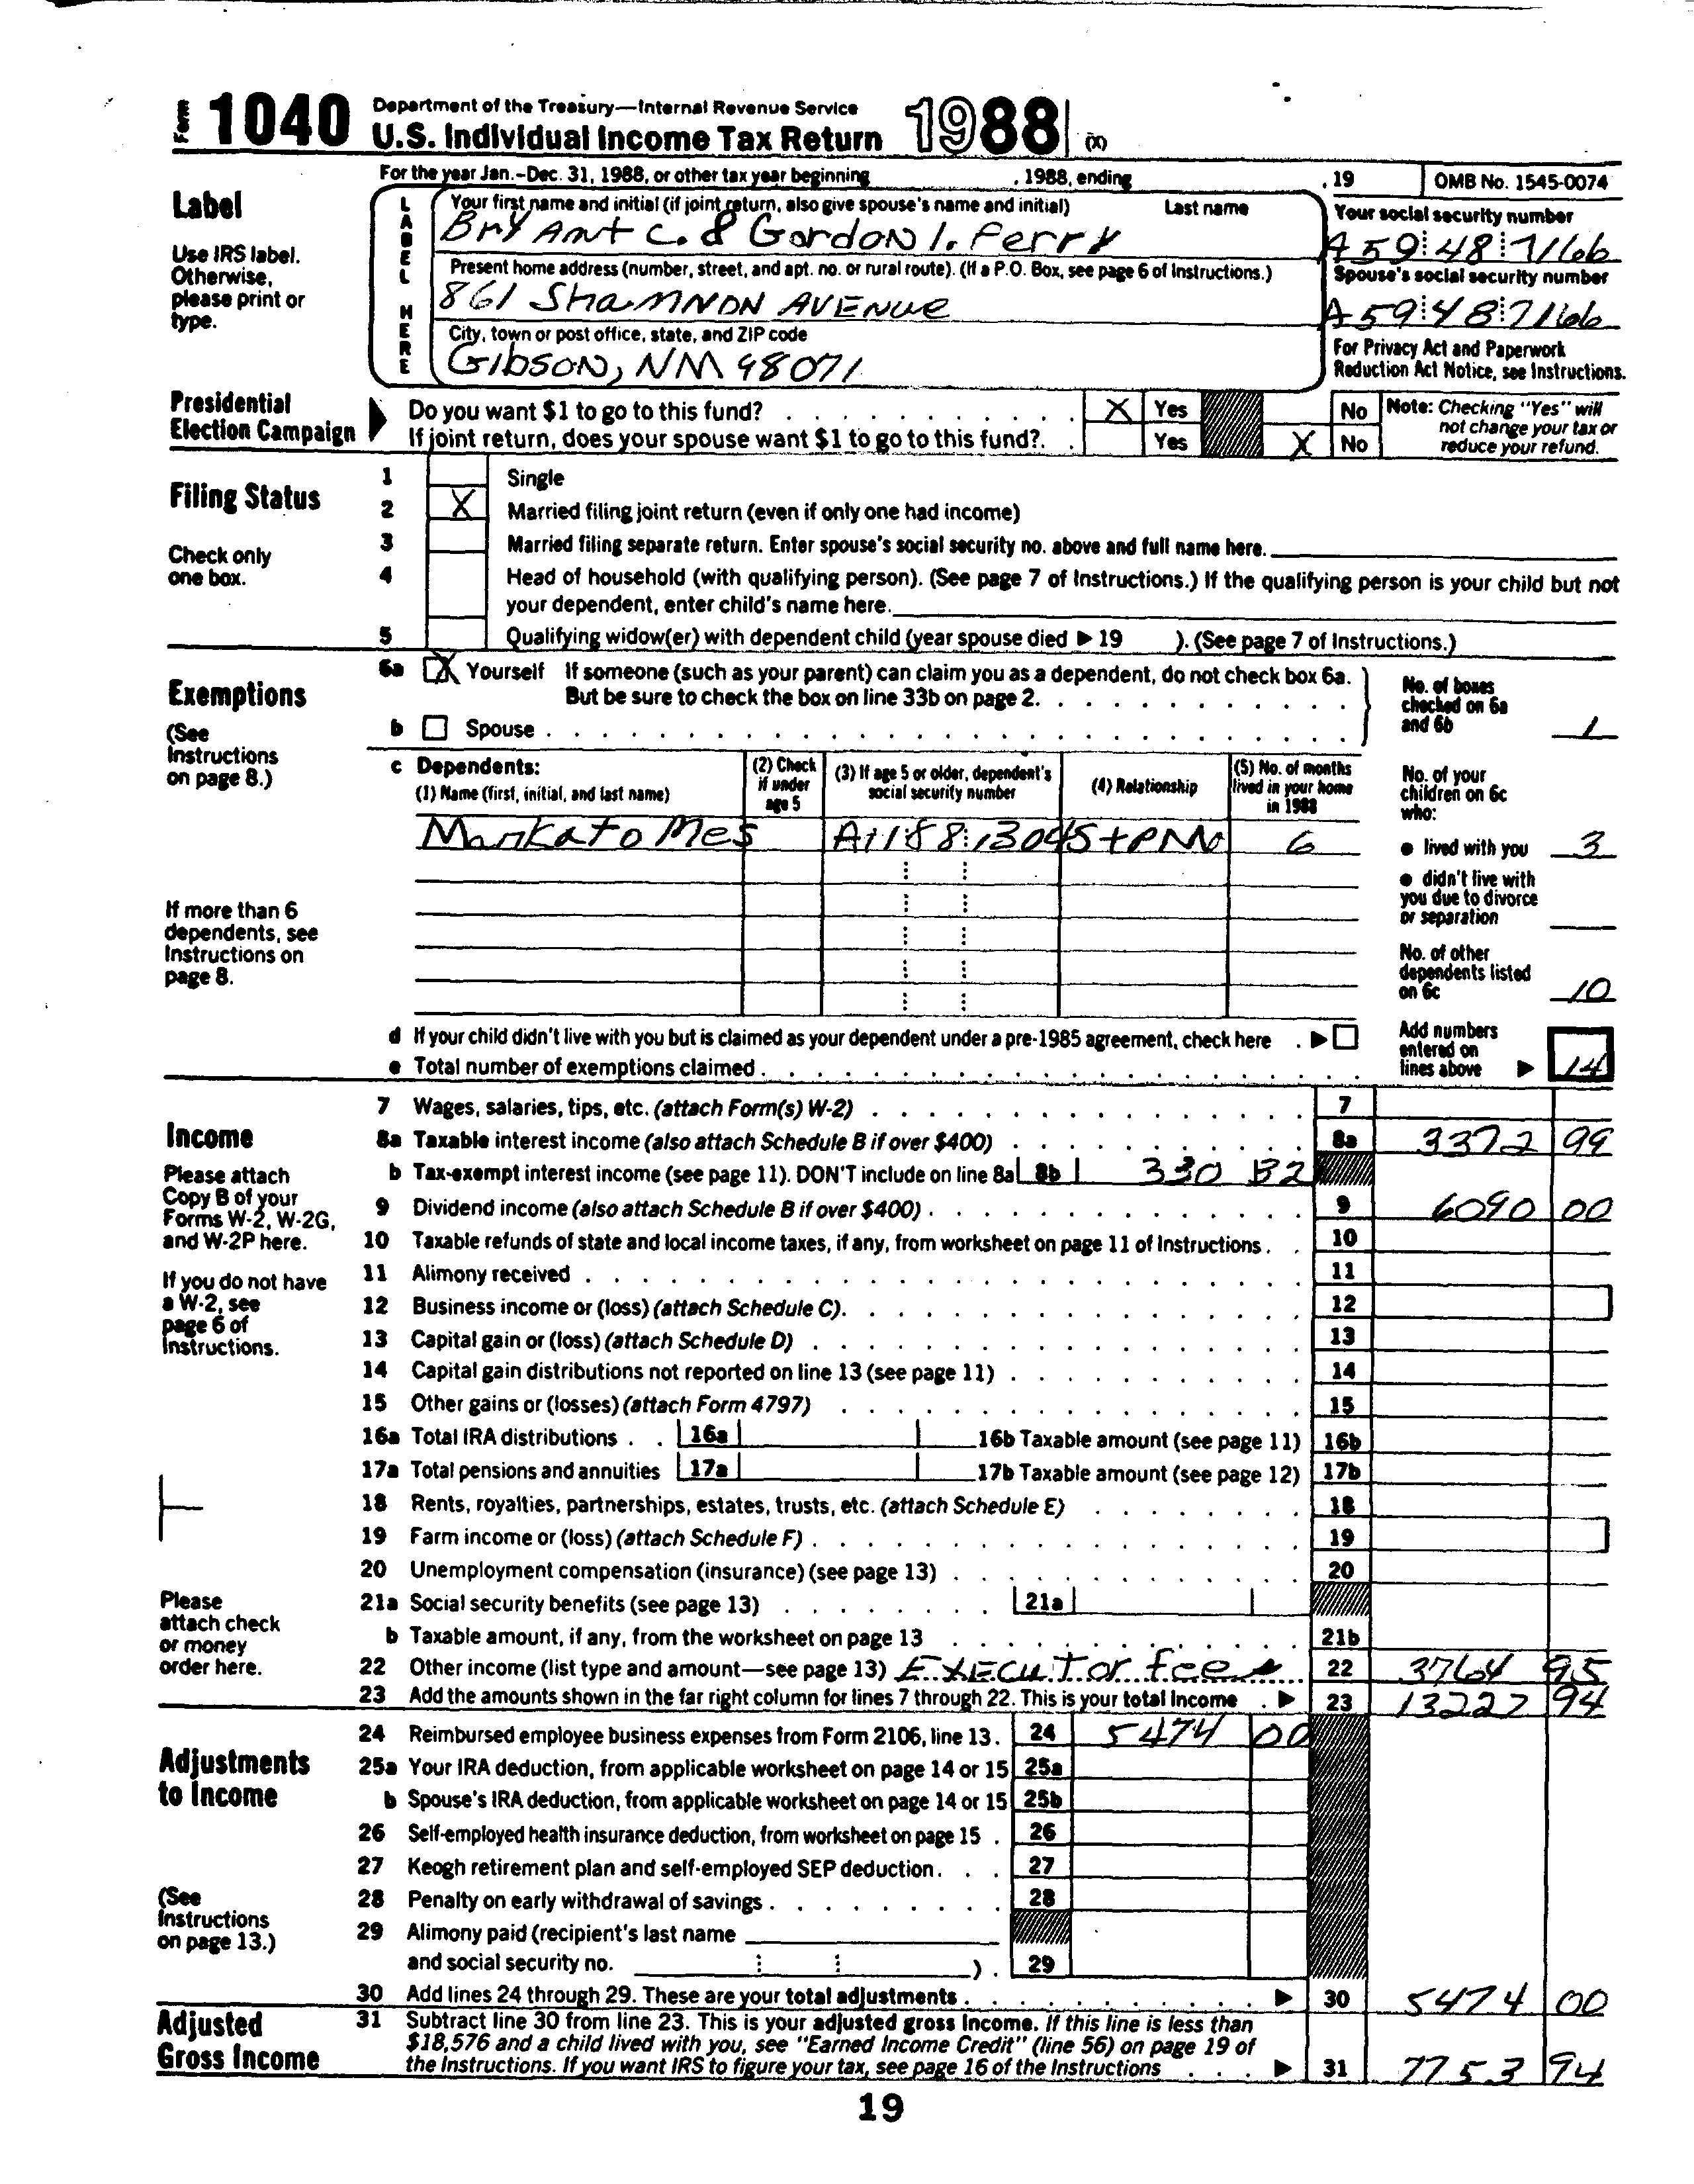 Form 1040 Department of the Treasury—Internal Revenue Service
U.S. Individual Income Tax Return 1988 (X)
For the year Jan.-Dec. 31, 1988, or other tax year beginning , 1988, ending , 19 OMB No. 1545-0074
Label
Use IRS label.
Otherwise,
please print or
type.
LABEL HERE
Your first name and initial (if joint return, also give spouse's name and initial) Last name
Bryant C. & Gordon I. Perry
Your social security number
A59 48 7166
Present home address (number, street, and apt. no. or rural route). (If a P.O. Box, see page 6 of Instructions.)
861 ShaMNON AVENUE
Spouse's social security number
A59 48 7166
City, town or post office, state, and ZIP code
GIBSON, NM 48071
For Privacy Act and Paperwork
Reduction Act Notice, see Instructions.
Presidential
Election Campaign
Do you want $1 to go to this fund? X Yes No
If joint return, does your spouse want $1 to go to this fund? Yes X No
Note: Checking "Yes" will
not change your tax or
reduce your refund.
Filing Status
Check only
one box.
1 Single
2 X Married filing joint return (even if only one had income)
3 Married filing separate return. Enter spouse's social security no. above and full name here.
4 Head of household (with qualifying person). (See page 7 of Instructions.) If the qualifying person is your child but not
your dependent, enter child's name here.
5 Qualifying widow(er) with dependent child (year spouse died ▶ 19 ). (See page 7 of Instructions.)
Exemptions
(See
Instructions
on page 8.)
6a X Yourself If someone (such as your parent) can claim you as a dependent, do not check box 6a.
But be sure to check the box on line 33b on page 2.
b Spouse
No. of boxes
checked on 6a
and 6b 1
c Dependents:
(1) Name (first, initial, and last name)
(2) Check
if under
age 5
(3) If age 5 or older, dependent's
social security number
(4) Relationship
(5) No. of months
lived in your home
in 1988
Mankato Mes A1188 3045 tPNN 6
If more than 6
dependents, see
Instructions on
page 8.
No. of your
children on 6c
who:
● lived with you 3
● didn't live with
you due to divorce
or separation
No. of other
dependents listed
on 6c 10
d If your child didn't live with you but is claimed as your dependent under a pre-1985 agreement, check here ▶
e Total number of exemptions claimed
Add numbers
entered on
lines above ▶ 14
Income
Please attach
Copy B of your
Forms W-2, W-2G,
and W-2P here.
If you do not have
a W-2, see
page 6 of
Instructions.
Please
attach check
or money
order here.
7 Wages, salaries, tips, etc. (attach Form(s) W-2) 7
8a Taxable interest income (also attach Schedule B if over $400) 8a 3372 99
b Tax-exempt interest income (see page 11). DON'T include on line 8a 8b 330 B2
9 Dividend income (also attach Schedule B if over $400) 9 6090 00
10 Taxable refunds of state and local income taxes, if any, from worksheet on page 11 of Instructions 10
11 Alimony received 11
12 Business income or (loss) (attach Schedule C) 12
13 Capital gain or (loss) (attach Schedule D) 13
14 Capital gain distributions not reported on line 13 (see page 11) 14
15 Other gains or (losses) (attach Form 4797) 15
16a Total IRA distributions 16a 16b Taxable amount (see page 11) 16b
17a Total pensions and annuities 17a 17b Taxable amount (see page 12) 17b
18 Rents, royalties, partnerships, estates, trusts, etc. (attach Schedule E) 18
19 Farm income or (loss) (attach Schedule F) 19
20 Unemployment compensation (insurance) (see page 13) 20
21a Social security benefits (see page 13) 21a
b Taxable amount, if any, from the worksheet on page 13 21b
22 Other income (list type and amount—see page 13) EXECUTOR fees 22 3764 95
23 Add the amounts shown in the far right column for lines 7 through 22. This is your total income ▶ 23 13227 94
Adjustments
to Income
(See
Instructions
on page 13.)
24 Reimbursed employee business expenses from Form 2106, line 13 24 5474 00
25a Your IRA deduction, from applicable worksheet on page 14 or 15 25a
b Spouse's IRA deduction, from applicable worksheet on page 14 or 15 25b
26 Self-employed health insurance deduction, from worksheet on page 15 26
27 Keogh retirement plan and self-employed SEP deduction 27
28 Penalty on early withdrawal of savings 28
29 Alimony paid (recipient's last name
and social security no. ) 29
30 Add lines 24 through 29. These are your total adjustments ▶ 30 5474 00
Adjusted
Gross Income
31 Subtract line 30 from line 23. This is your adjusted gross income. If this line is less than
$18,576 and a child lived with you, see "Earned Income Credit" (line 56) on page 19 of
the Instructions. If you want IRS to figure your tax, see page 16 of the Instructions ▶ 31 7753 94
19